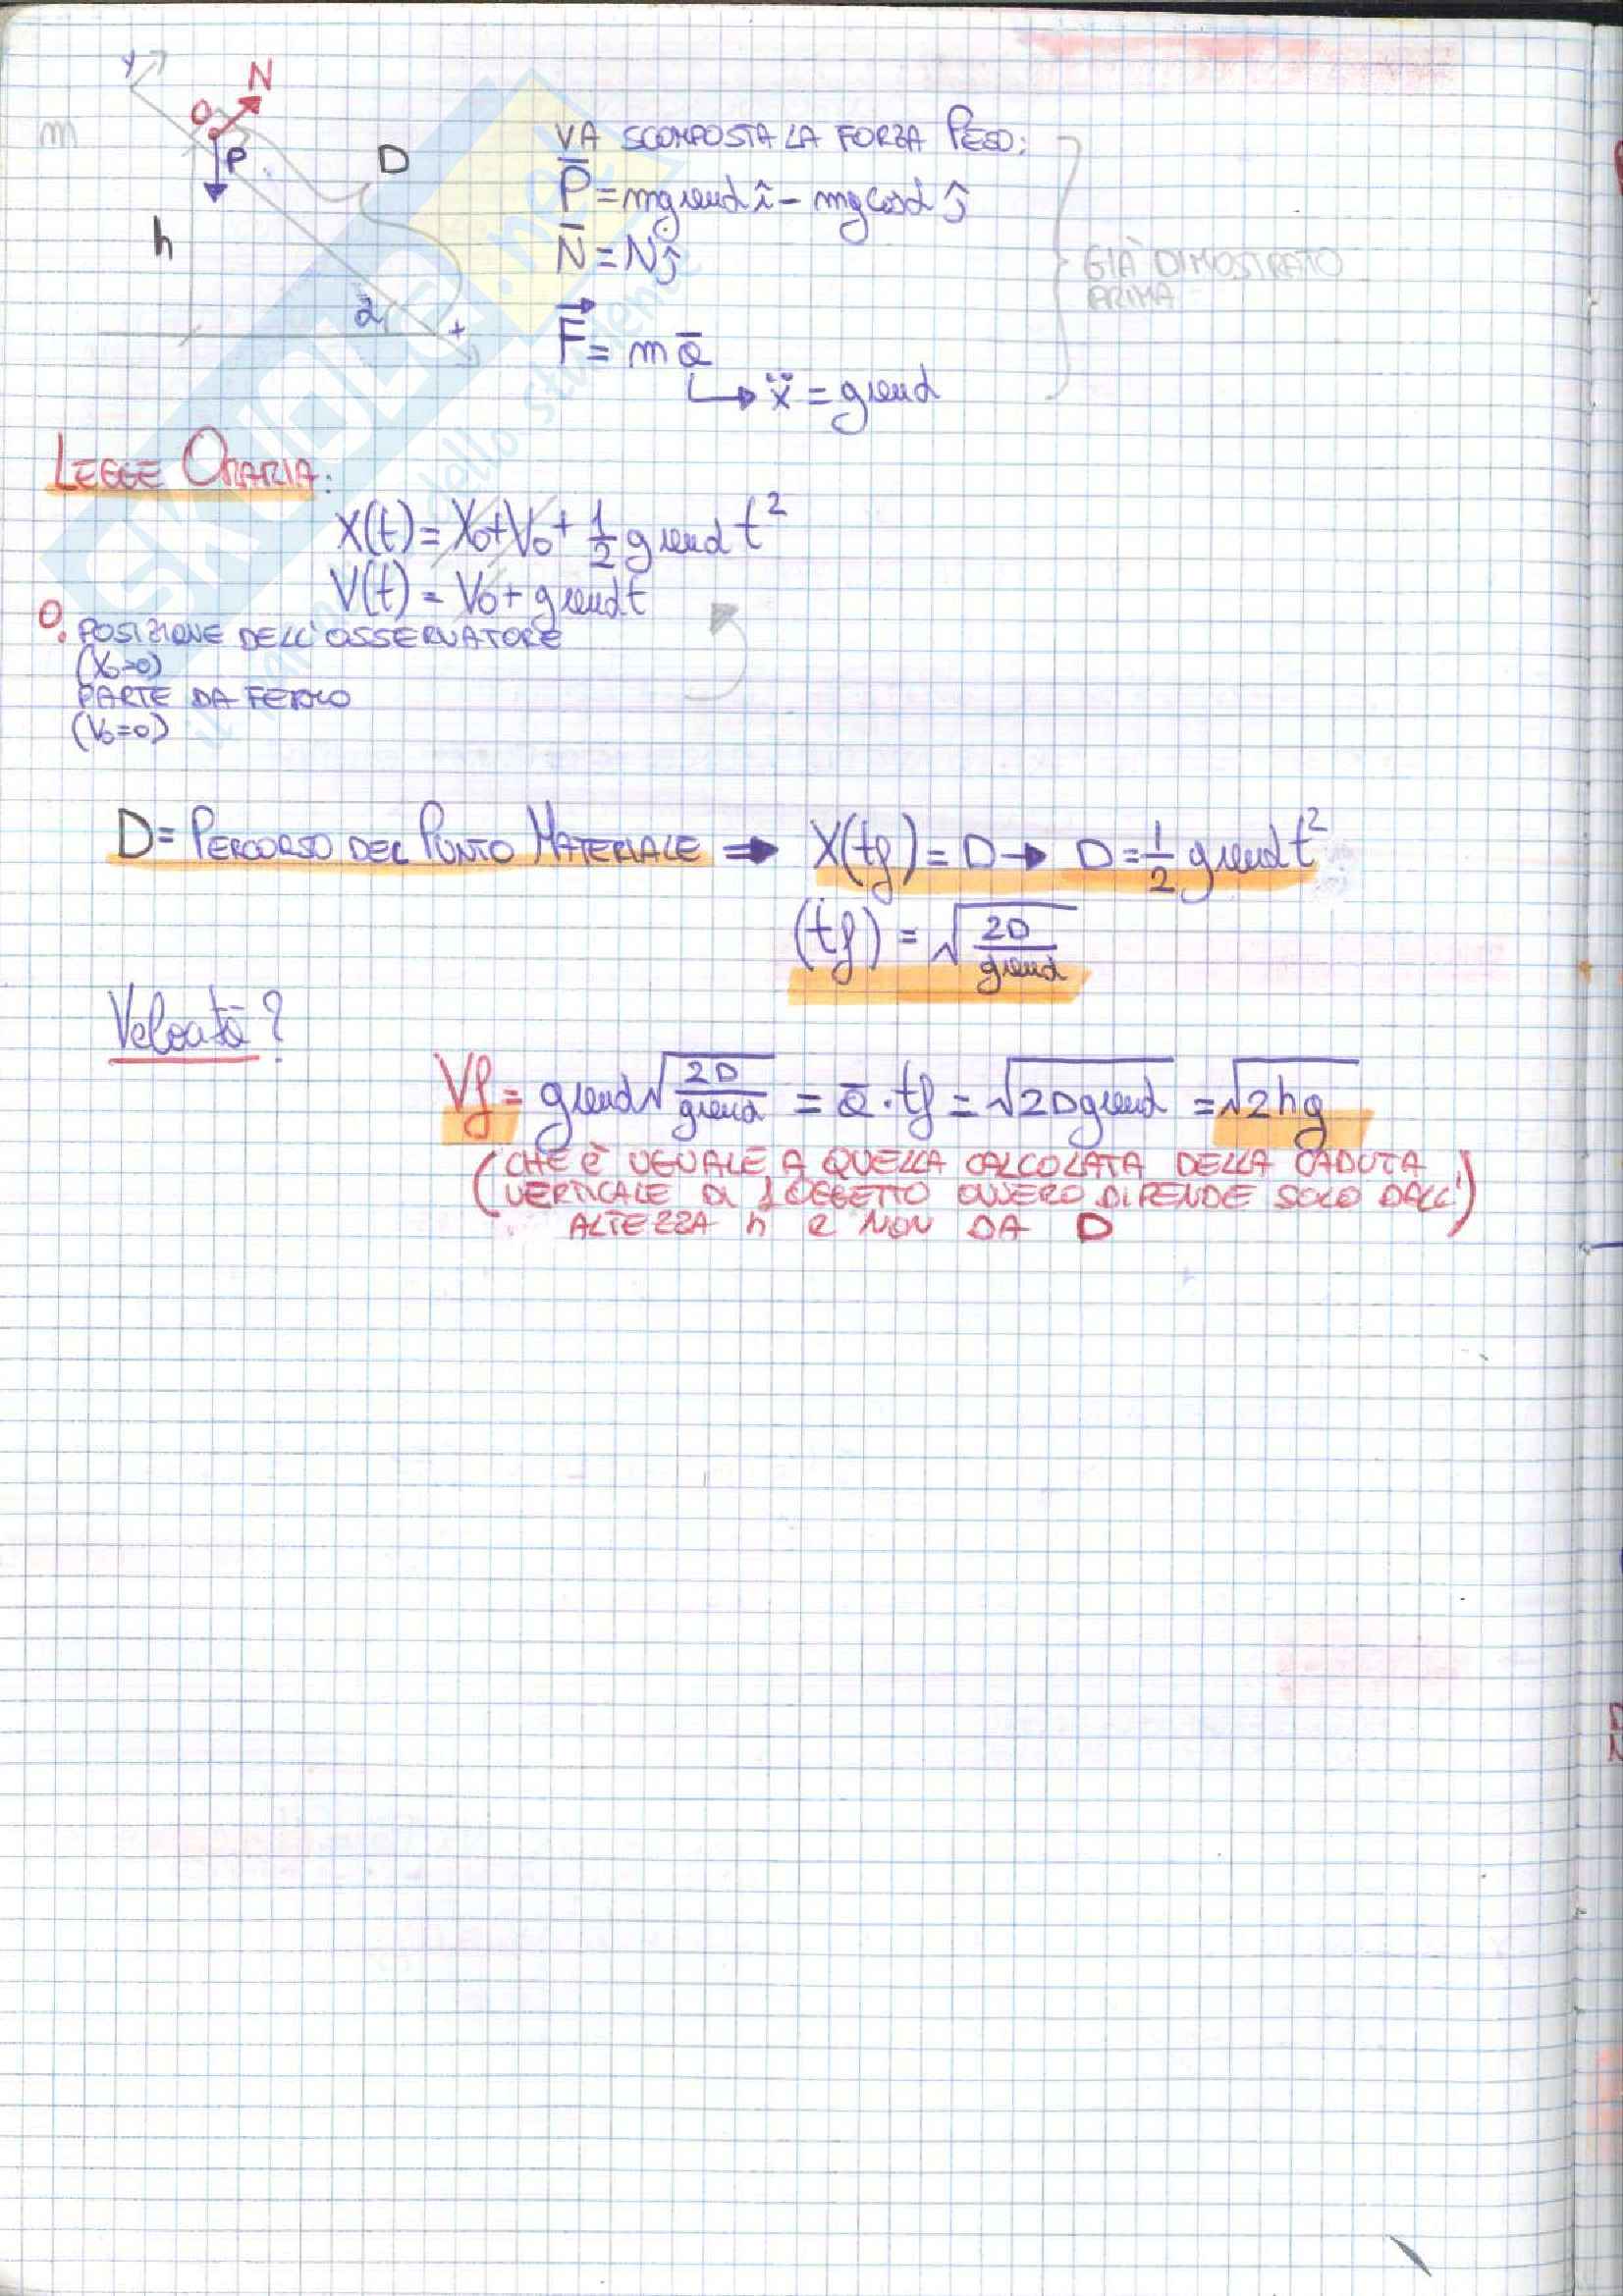 y
N
O
m
P
D
h
α
+
VA SCOMPOSTA LA FORZA PESO:
P̅ = mg senα î - mg cosα ĵ
N̅ = N ĵ
GIÀ DIMOSTRATO
PRIMA
F⃗ = m a̅
↳ ẍ = g senα
LEGGE ORARIA:
X(t) = X₀ + V₀ + 1/2 g senα t²
V(t) = V₀ + g senα t
O. POSIZIONE DELL'OSSERVATORE
(X₀=0)
PARTE DA FERMO
(V₀=0)
D = PERCORSO DEL PUNTO MATERIALE ⇒ X(tf) = D → D = 1/2 g senα t²
(tf) = √(2D / g senα)
Velocità?
Vf = g senα √(2D / g senα) = a̅ · tf = √(2D g senα) = √(2hg)
(CHE È UGUALE A QUELLA CALCOLATA DELLA CADUTA
VERTICALE DI 1 OGGETTO OVVERO DIPENDE SOLO DALL'
ALTEZZA h e NON DA D)
SKUOLA.net